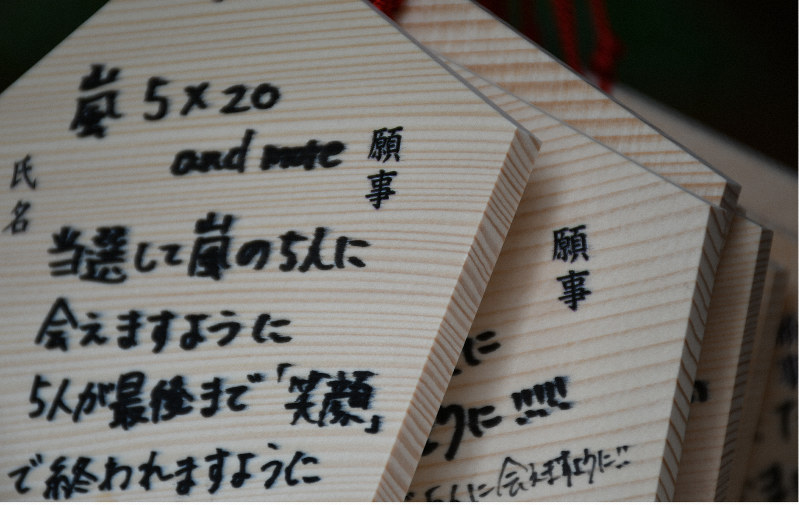 嵐 5×20
and more
願事
氏名
当選して嵐の5人に
会えますように
5人が最後まで「笑顔」
で終われますように
願事
に
ように!!!!!
5人に会えますように!!